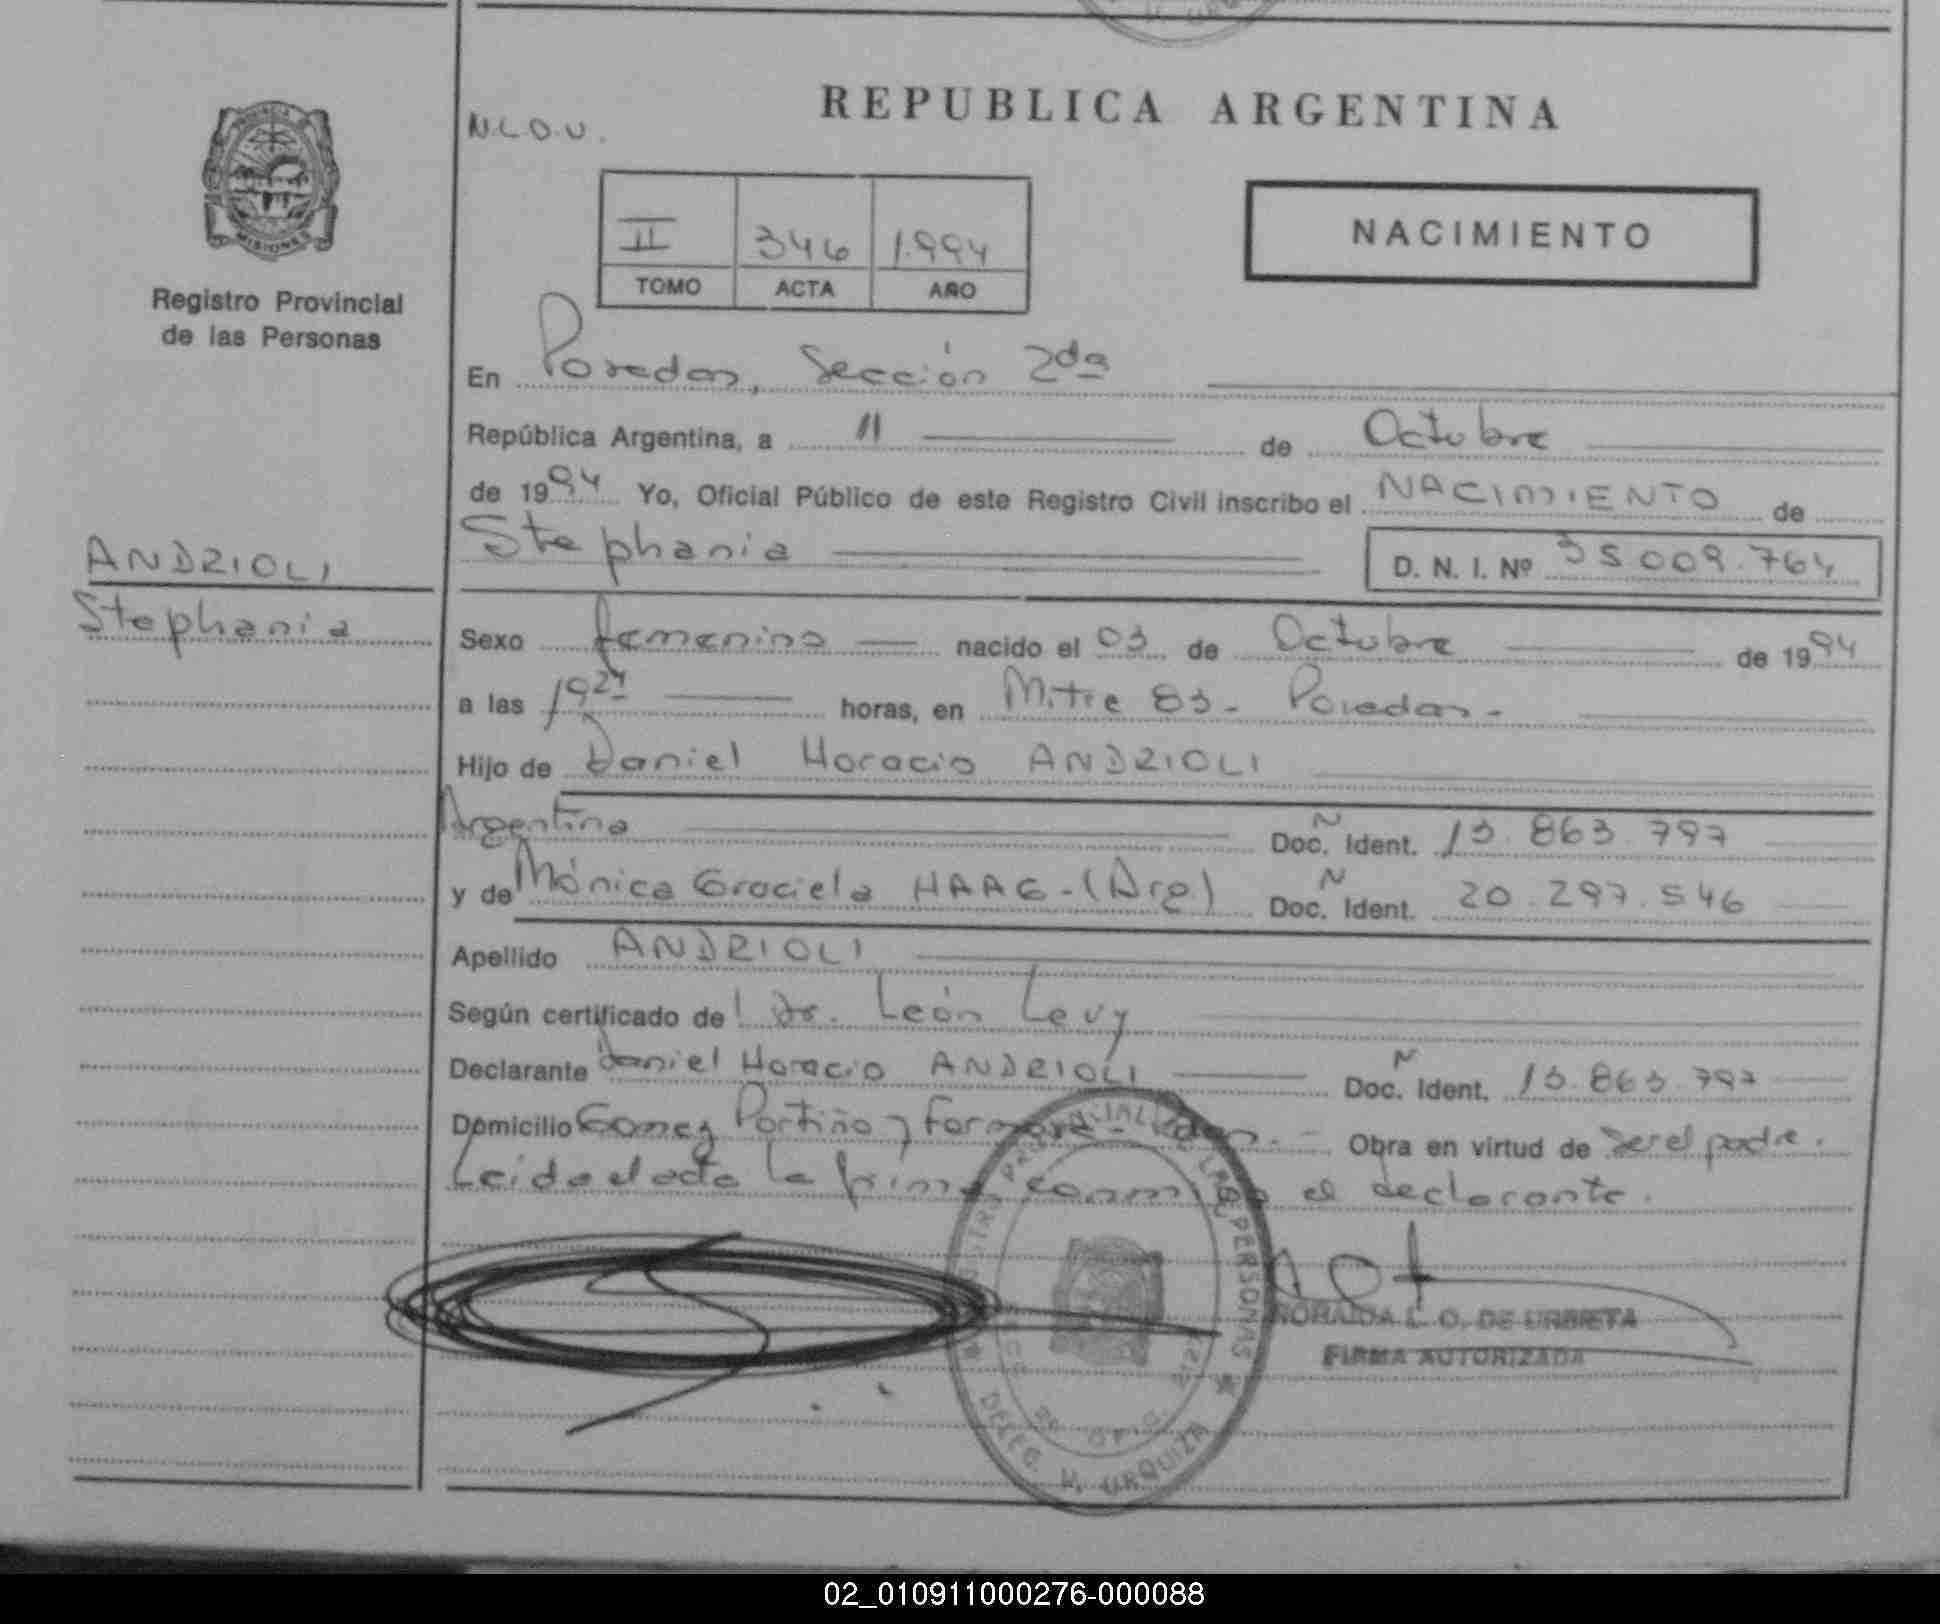 REPUBLICA ARGENTINA
N.L.O.U.
PROVINCIA DE
MISIONES
Registro Provincial
de las Personas
II 346 1.994
TOMO ACTA AÑO
NACIMIENTO
En Posadas, Sección 2da
República Argentina, a 11 de Octubre
de 1994 Yo, Oficial Público de este Registro Civil inscribo el NACIMIENTO de
Stephania D. N. I. Nº 35009.764
ANDRIOLI
Stephania
Sexo femenino nacido el 03 de Octubre de 1994
a las 19 horas, en Mitre 83 - Posadas -
Hijo de Daniel Horacio ANDRIOLI
Argentino Doc. Ident. 13.863.797
y de Mónica Graciela HAAG - (Arg) Doc. Ident. 20.297.546
Apellido ANDRIOLI
Según certificado de l Dr. León Levy
Declarante Daniel Horacio ANDRIOLI Doc. Ident. 13.863.797
Domicilio Gomez Portiño y Obra en virtud de Ser el padre.
Leida el acta la firma conmigo el declarante.
REGISTRO PROVINCIAL DE LAS PERSONAS
DELEG. H. URQUIZA
L. O. DE URBIETA
FIRMA AUTORIZADA
02_010911000276-000088